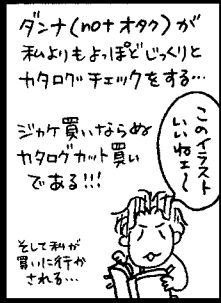 ダンナ(notオタク)が
私よりもよっぽどじっくりと
カタログチェックをする…
ジャケ買いならぬ
カタログカット買い
である!!!
このイラスト
いいねェ〜
そして私が
買いに行か
される…